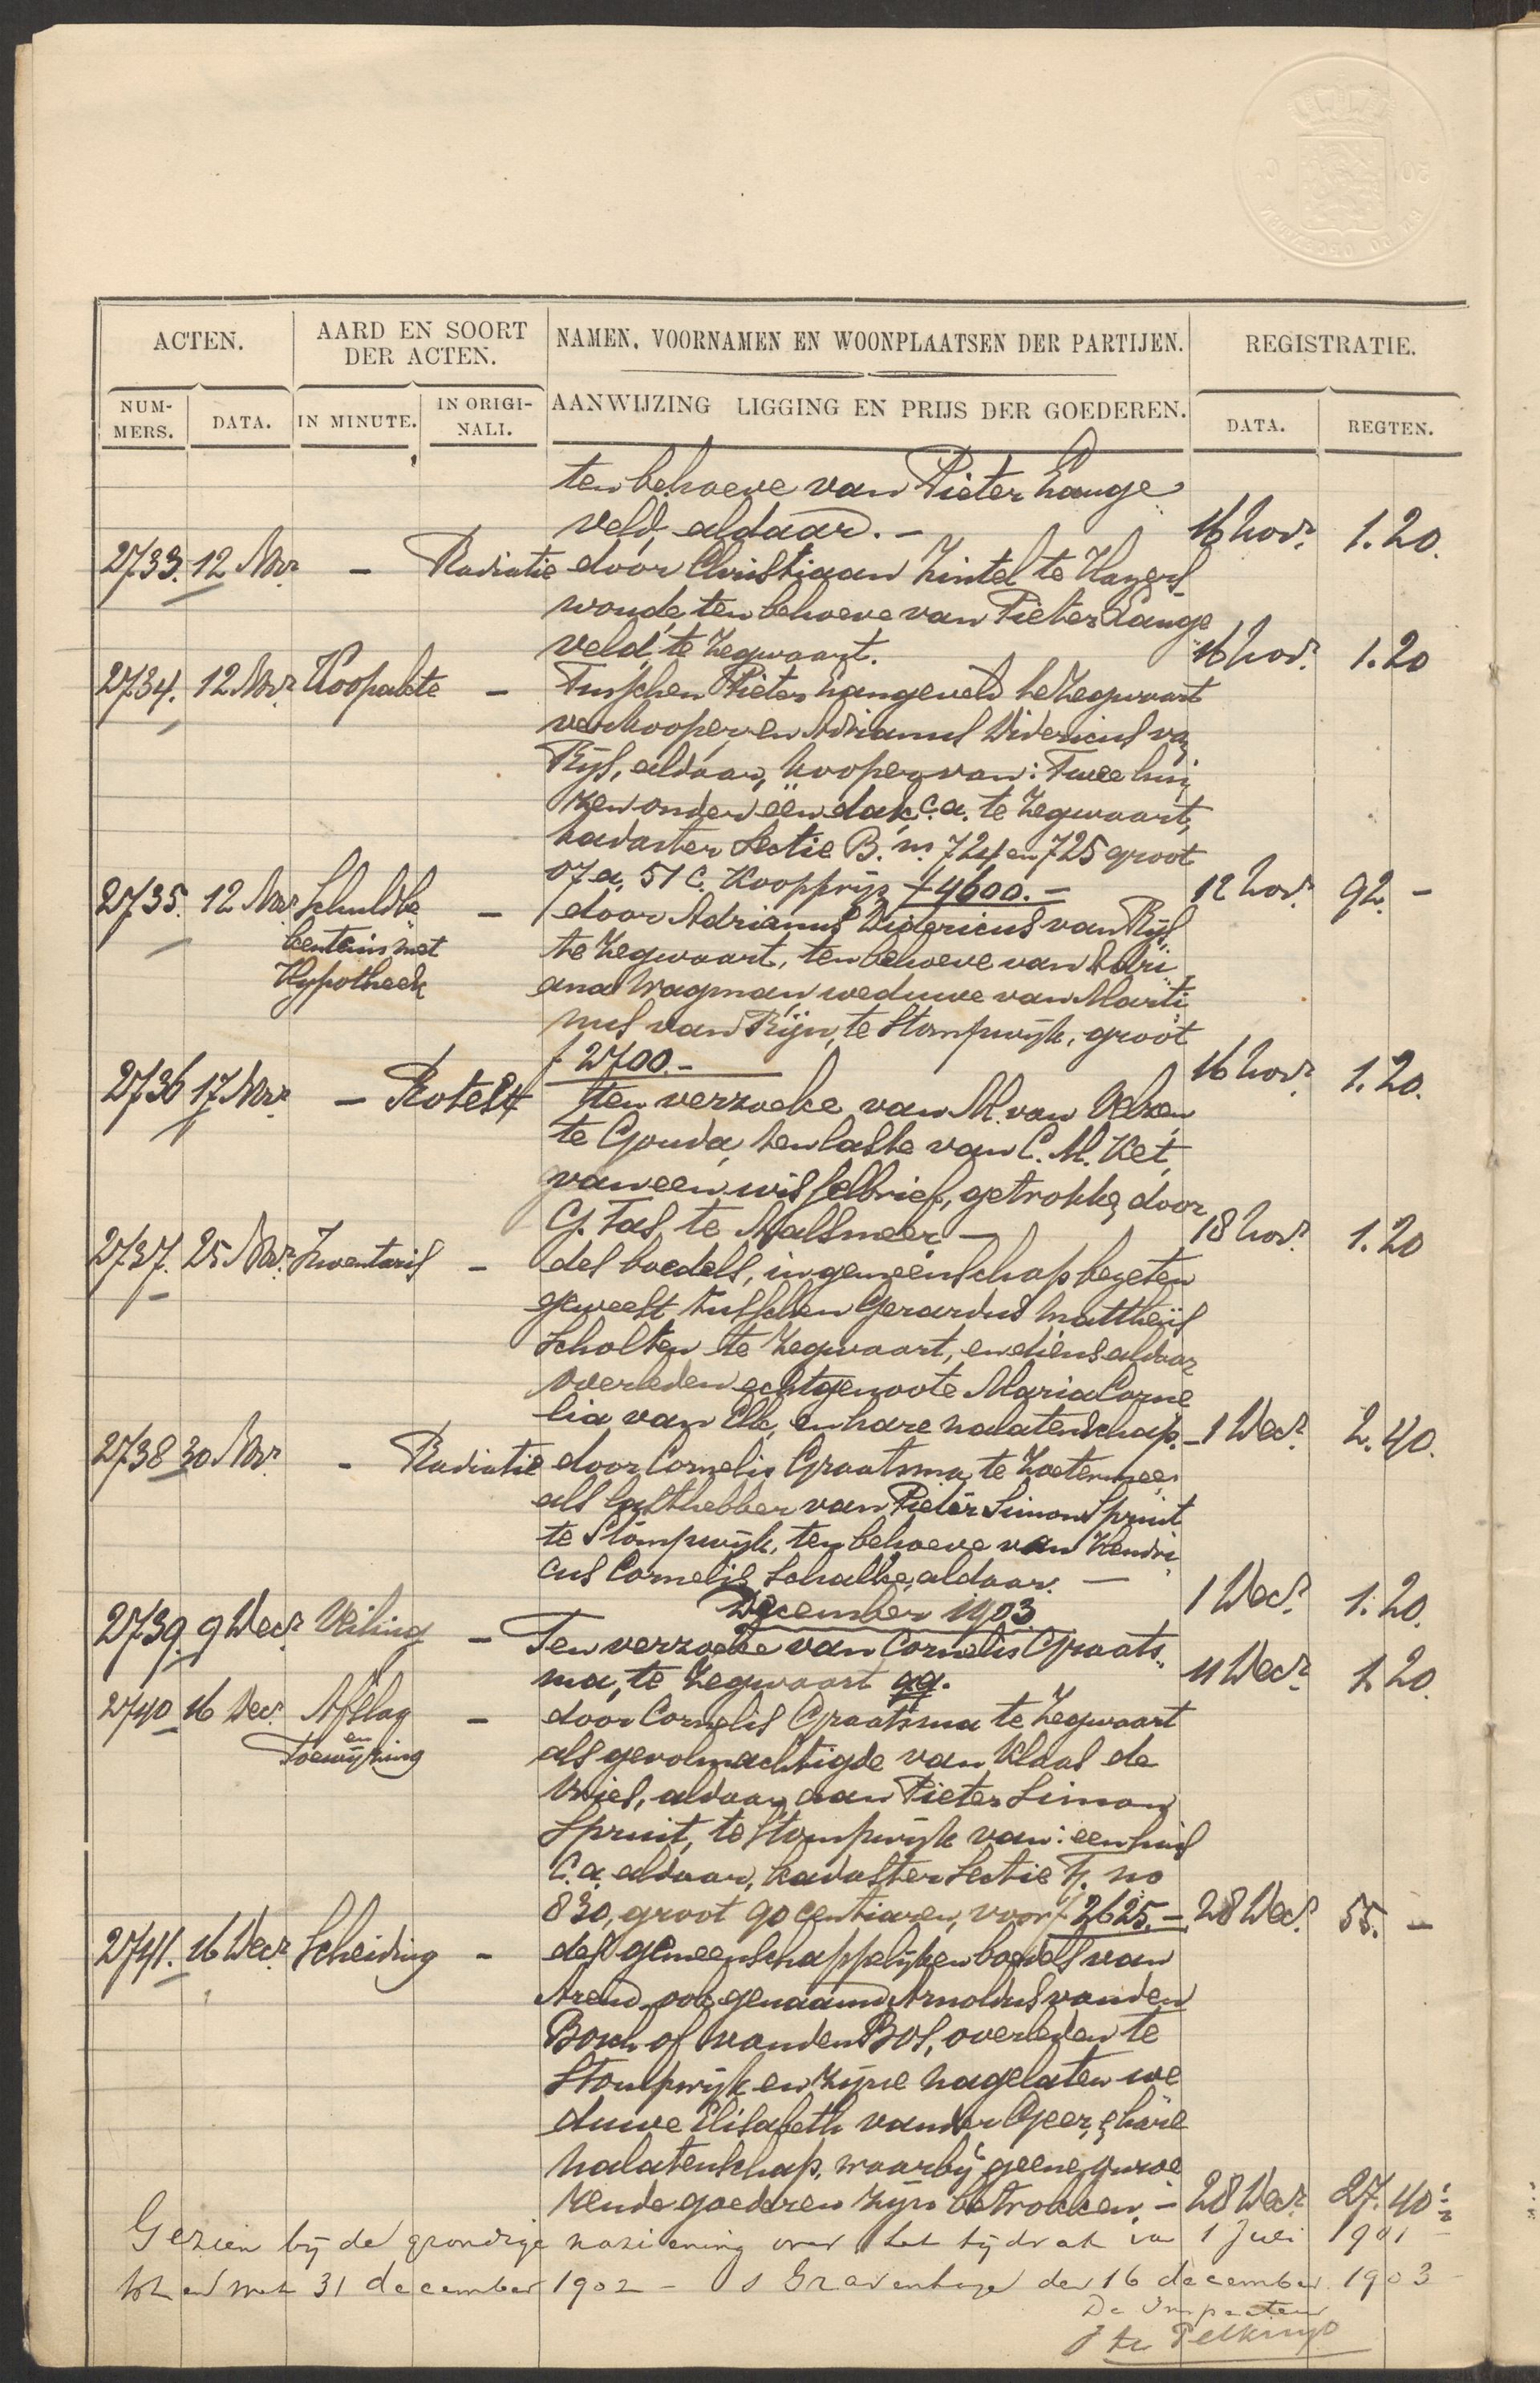 ACTEN.
AARD EN SOORT
DER ACTEN.
NAMEN, VOORNAMEN EN WOONPLAATSEN DER PARTIJEN.
REGISTRATIE.
NUM-
MERS.
DATA.
IN MINUTE.
IN ORIGI-
NALI.
AANWIJZING LIGGING EN PRIJS DER GOEDEREN.
DATA.
REGTEN.
ten behoeve van Pieter Lange
veld, aldaar. - 16 Novr. 1.20.
2733. 12 Novr. - Radiatie door Christiaan Zintel te Hazers
woude, ten behoeve van Pieter Lange
veld, te Zegwaart. 16 Novr. 1.20
2734. 12 Novr. Koopakte - Tusschen Pieter Langeveld te Zegwaart
verkooper, en Adrianus Didericus van
Rijs, aldaar, kooper van: Twee hui
zen onder één dak, c.a. te Zegwaart,
kadaster Sectie B. no. 724 en 725 groot
07 a, 51 c. Koopprijs f 4600.- 12 Novr. 92.-
2735. 12 Novr. Schuldbe - door Adrianus Didericus van Rijs,
kentenis met te Zegwaart, ten behoeve van Adri
Hypotheek ana Wagman, weduwe van Marti
nus van Rijn, te Stompwijk, groot
f 2700.- 16 Novr. 1.20.
2736 17 Novr. - Protest ten verzoeke van M. van Velzen
te Gouda, ten laste van C. M. Ket,
van een wisselbrief, getrokken door
G. Tas, te Aalsmeer - 18 Novr. 1.20
2737. 25 Novr. Inventaris - des boedels, in gemeenschap bezeten
geweest tusschen Gerardus Mattheijs
Scholten te Zegwaart, en diens aldaar
overleden echtgenoote Maria Corne
lia van Elk, en hare nalatenschap. - 1 Decr. 2.40.
2738 30 Novr. - Radiatie door Cornelis Graatsma, te Zoetermeer
als lasthebber van Pieter Simon Spruit
te Stompwijk, ten behoeve van Hendri
cus Cornelis Schalke, aldaar. - 1 Decr. 1.20.
December 1903
2739. 9 Decr. Veiling - Ten verzoeke van Cornelis Graats
ma, te Zegwaart qq. 11 Decr. 1.20.
2740 16 Decr. Afslag - door Cornelis Graatsma te Zegwaart
en
Toewijzing als gevolmachtigde van Klaas de
Vries, aldaar, aan Pieter Simon
Spruit, te Stompwijk van: een huis
c.a. aldaar, kadaster Sectie F. no
830, groot 90 centiaren, voor f 2625.- 28 Decr. 55.-
2741. 16 Decr. Scheiding - des gemeenschappelijken boedels van
Arend ook genaamd Arnoldus van den
Bosch of van den Bos, overleden te
Stompwijk en zijne nagelaten we
duwe Elisabeth van der Geer, en hare
nalatenschap, waarbij geene onroe
rende goederen zijn betrokken. - 28 Decr. 27.40
Gezien bij de grondige naziening over het tijdvak van 1 Juli 1901
tot en met 31 december 1902 - 's Gravenhage den 16 december 1903
De Inspecteur